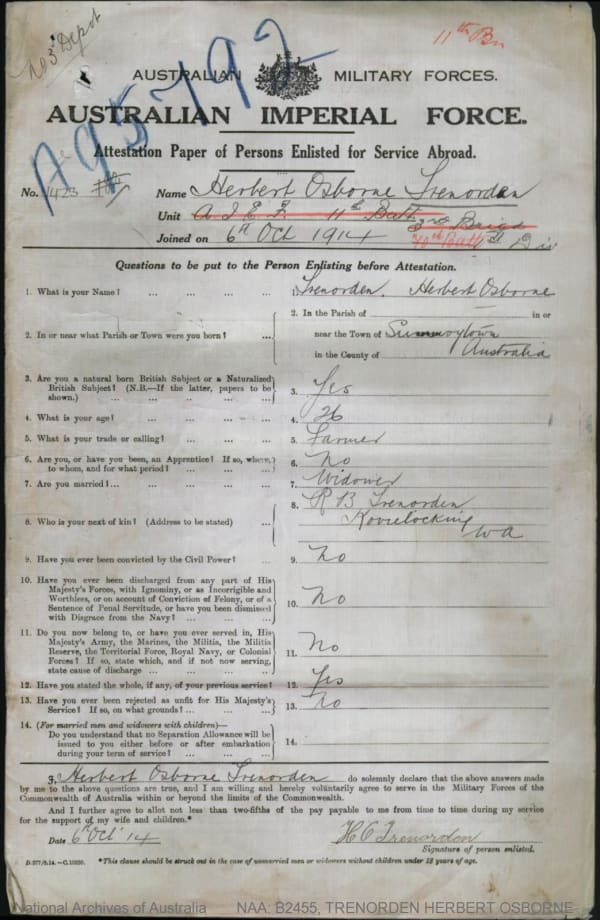 No 3 Depot
11th Bn
A95792
AUSTRALIAN MILITARY FORCES.
AUSTRALIAN IMPERIAL FORCE.
Attestation Paper of Persons Enlisted for Service Abroad.
No. 1423 Name Herbert Osborne Trenorden
Unit A I E F 11th Batt 3rd Brigd
Joined on 6th Oct 1914 10th Batt
Questions to be put to the Person Enlisting before Attestation.
1. What is your Name? ... ... ... ... 1. Trenorden, Herbert Osborne
2. In or near what Parish or Town were you born? ... 2. In the Parish of — in or
near the Town of
in the County of Australia
3. Are you a natural born British Subject or a Naturalized
British Subject? (N.B.—If the latter, papers to be
shown.) ... ... ... ... ... 3. Yes
4. What is your age? ... ... ... ... 4. 26
5. What is your trade or calling? ... ... ... 5. Farmer
6. Are you, or have you been, an Apprentice? If so, where,
to whom, and for what period? ... ... ... 6. No
7. Are you married? ... ... ... ... ... 7. Widower
8. Who is your next of kin? (Address to be stated) ... 8. R B Trenorden
Korrelocking
W A
9. Have you ever been convicted by the Civil Power? ... 9. No
10. Have you ever been discharged from any part of His
Majesty's Forces, with Ignominy, or as Incorrigible and
Worthless, or on account of Conviction of Felony, or of a
Sentence of Penal Servitude, or have you been dismissed
with Disgrace from the Navy? ... ... ... 10. No
11. Do you now belong to, or have you ever served in, His
Majesty's Army, the Marines, the Militia, the Militia
Reserve, the Territorial Force, Royal Navy, or Colonial
Forces? If so, state which, and if not now serving,
state cause of discharge ... ... ... ... 11. No
12. Have you stated the whole, if any, of your previous service? 12. Yes
13. Have you ever been rejected as unfit for His Majesty's
Service? If so, on what grounds? ... ... ... 13. No
14. (For married men and widowers with children)—
Do you understand that no Separation Allowance will be
issued to you either before or after embarkation
during your term of service? ... ... ... 14.
I, Herbert Osborne Trenorden do solemnly declare that the above answers made
by me to the above questions are true, and I am willing and hereby voluntarily agree to serve in the Military Forces of the
Commonwealth of Australia within or beyond the limits of the Commonwealth.
And I further agree to allot not less than two-fifths of the pay payable to me from time to time during my service
for the support of my wife and children.*
Date 6th Oct 14 H O Trenorden
Signature of person enlisted.
*This clause should be struck out in the case of unmarried men or widowers without children under 18 years of age.
National Archives of Australia NAA: B2455, TRENORDEN HERBERT OSBORNE